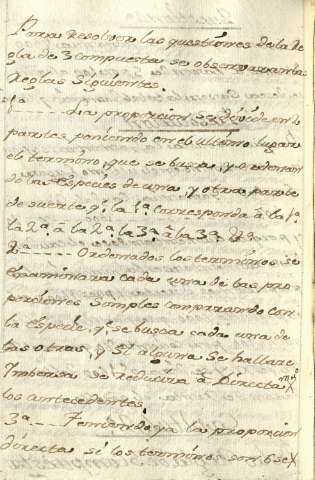 Para resolver las questiones de la Re
gla de 3 compuesta se observaran las
Reglas siguientes.
1ª ---- La proporcion se divide en 2
partes poniendo en el ultimo lugar
el termino, que se busca, y ordenan
do las especies de una, y otra parte
de suerte q.e la 1ª corresponda à la 1ª
la 2ª, à la 2ª, la 3ª à la 3ª, &ª
2ª ---- Ordenados los terminos, se
examinara cada una de las pro
porciones simples comparando con
la especie, q.e se busca cada una de
las otras, y si alguna se hallare
Imbersa se reducira à Directa
los antecedentes.
3ª ---- Teniendo ya la proporcion
directa si los terminos son 6 se X